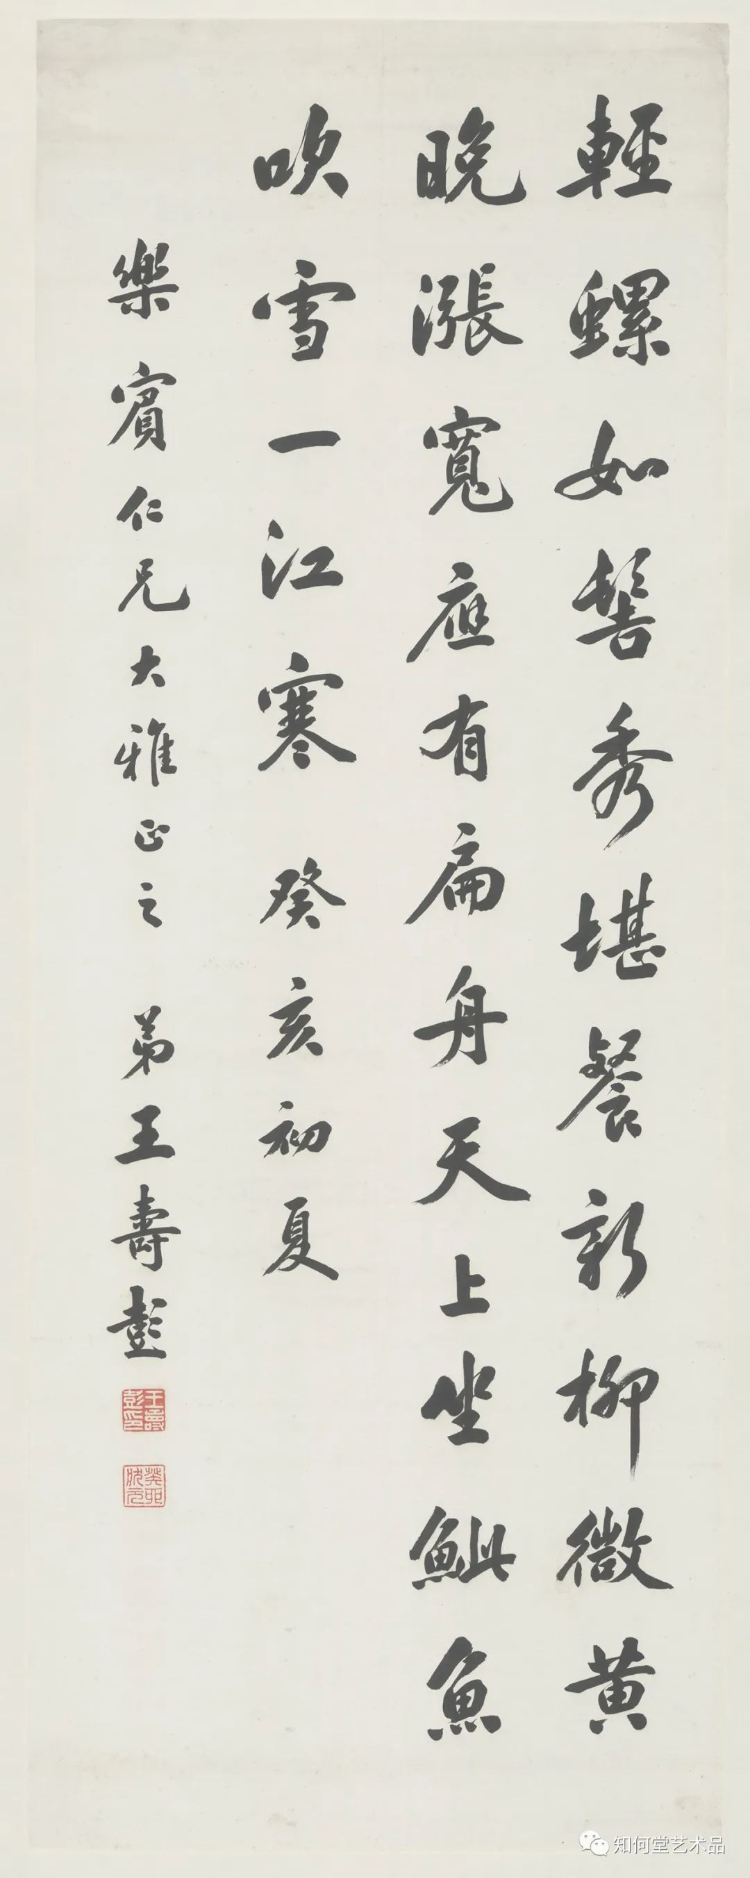 輕螺如髻秀堪餐新柳微黄
晚漲寬應有扁舟天上坐鮆魚
吹雪一江寒 癸亥初夏
樂賓仁兄大雅正之 弟王壽彭
王壽彭印
癸卯狀元
知何堂艺术品